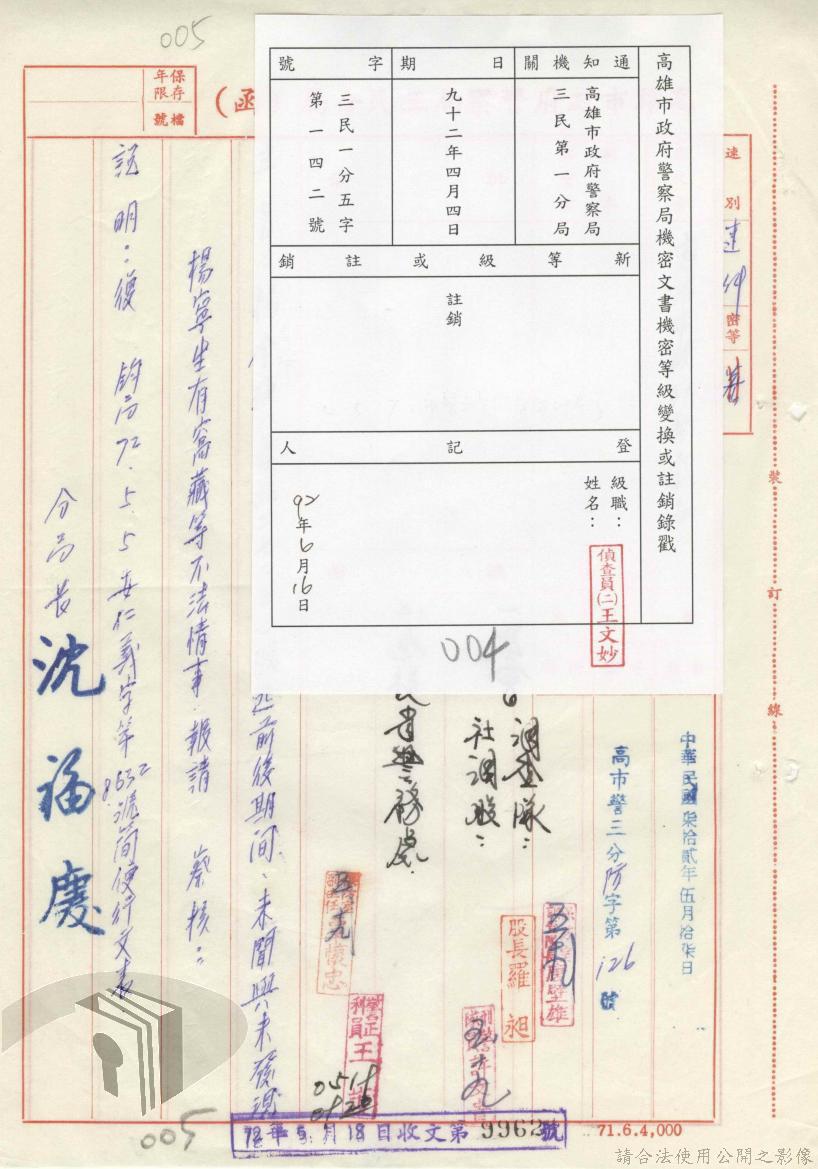 005
保存年限
檔號
（函
速別
速件
密等
高雄市政府警察局機密文書機密等級變換或註銷錄戳
通知機關
高雄市政府警察局
三民第一分局
日期
九十二年四月四日
字號
三民一分五字
第一四二號
新等級或註銷
註銷
登記人
級職：
姓名：
偵查員(二)王文妙
92年6月16日
004
中華民國柒拾貳年伍月拾柒日
高市警三分防字第126號
社調股：
股長羅昶
前後期间、未聞與未發現
楊寧生有窩藏等不法情事，報請 蔡核：
說明：復 鈞局72.5.5高仁義字第8632號简便行文表
分局長 沈福慶
0518
005
72年5月18日收文第9962號
71.6.4,000
裝
訂
線
請合法使用公開之影像